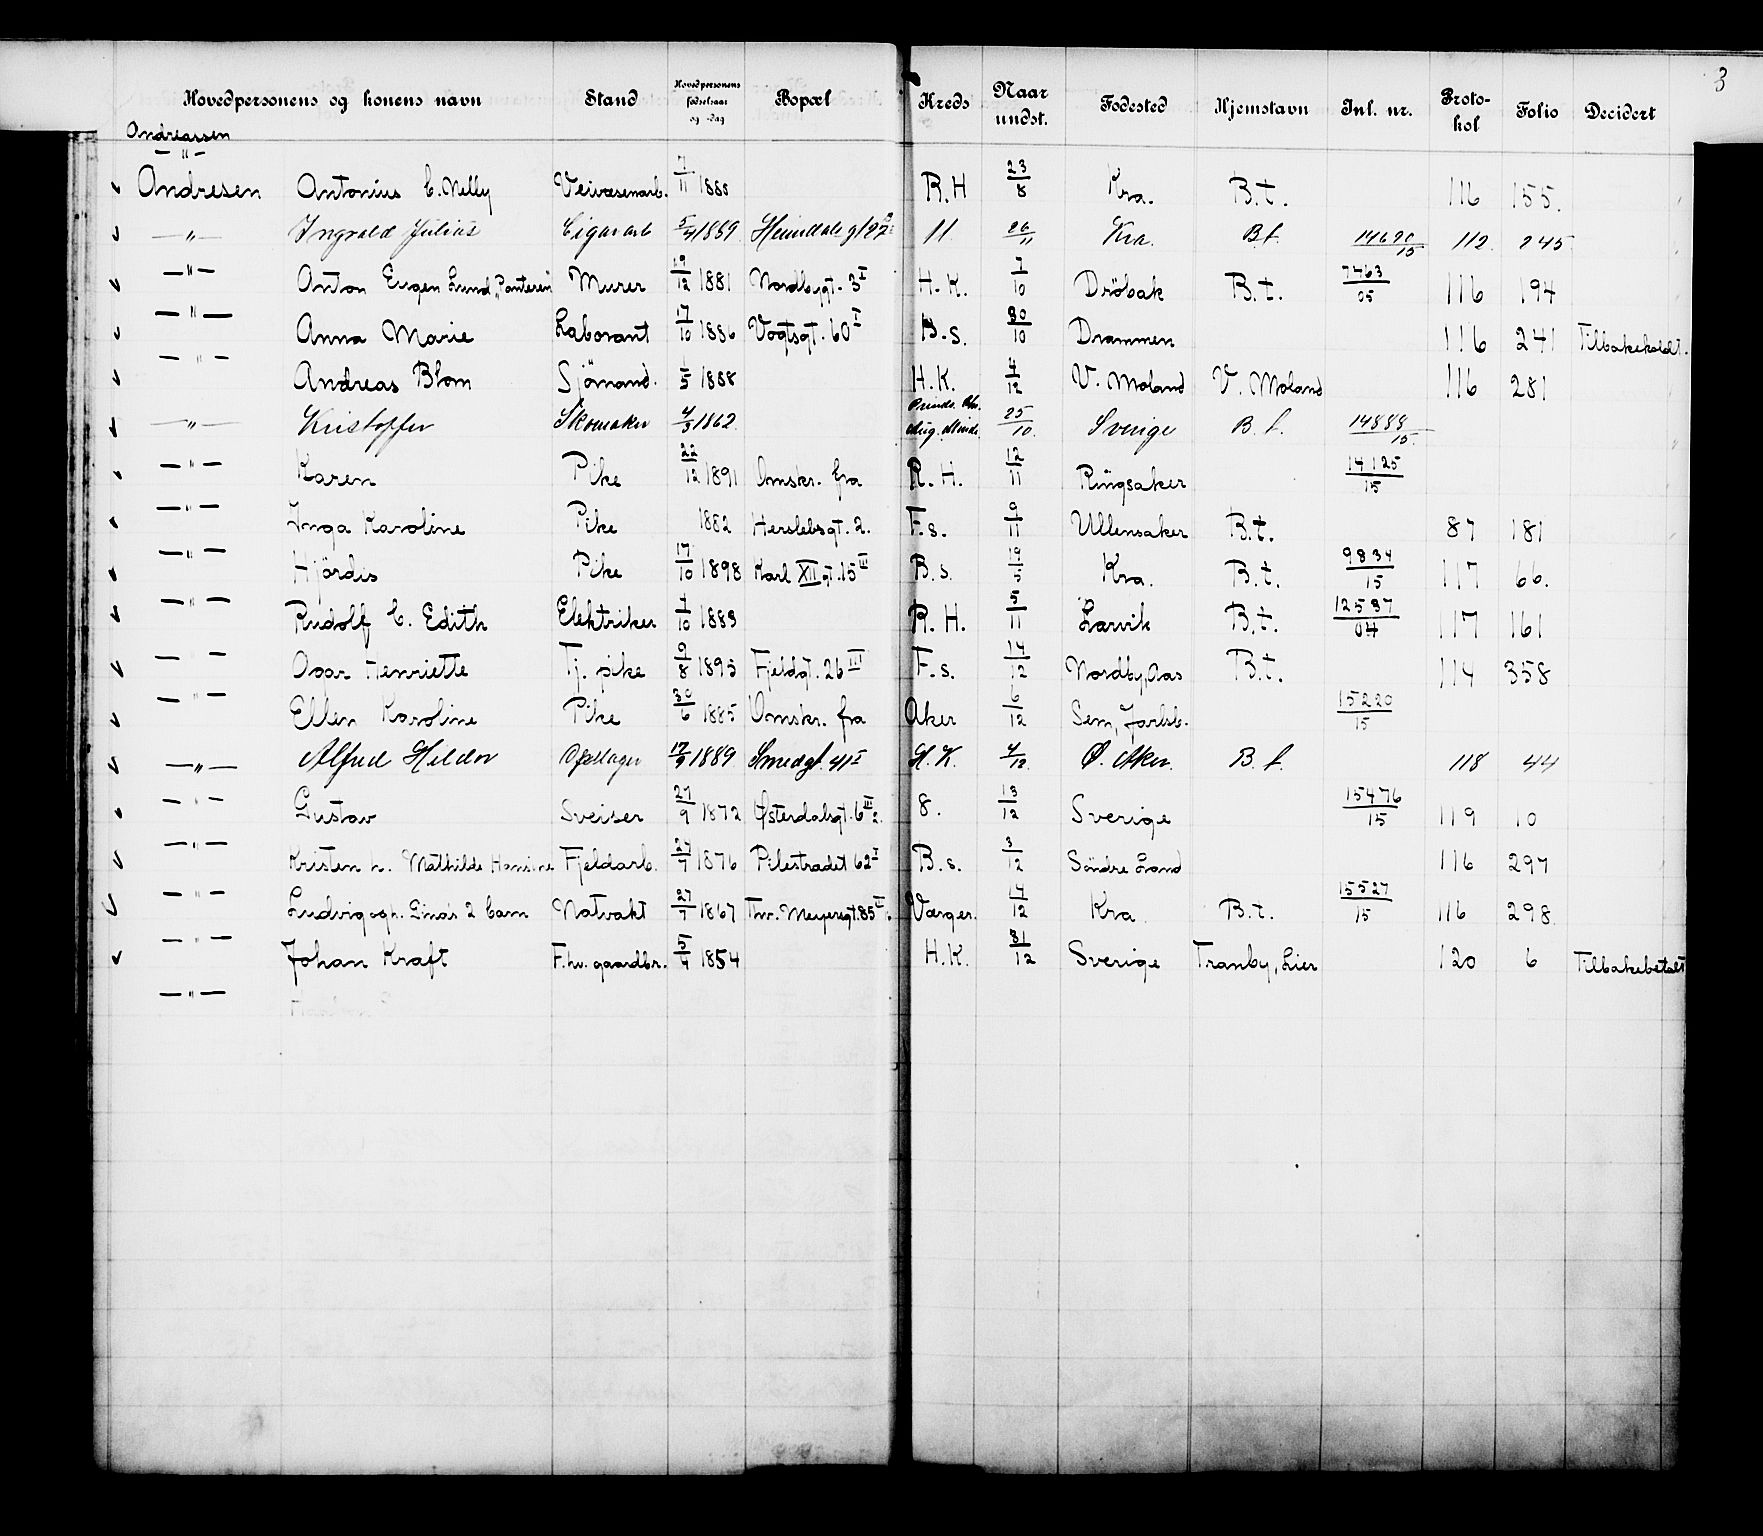 3
Hovedpersonens og konens navn Stand Hovedpersonens fødselsaar og -dag Bopæl Kreds Naar undst. Fødested Hjemstavn Inl. nr. Proto-kol Folio Decidert
Andreassen
— " —
Andresen Antonius C. Nelly Veivæsenarb. 7/11 1888 R.H 23/8 Kra. B.t. 116 155.
— " — Ingvald Julius Cigararb 5/4 1889 Heimdalsgt 27 11 26/11 Kra. B.t. 14690/15 112. 245
— " — Anton Eugen Lund, "Panteren" Murer 19/12 1881 Nordbygt. 3 I H.K. 7/10 Dröbak B.t. 7463/05 116 194
— " — Anna Marie Laborant 17/10 1886 Vogtsgt. 60 I B.s. 30/10 Drammen 116 241 Tilbakekaldt.
— " — Andreas Blom Sjömand. 1/5 1888 H.K. 4/12 V. Moland V. Moland 116 281
— " — Kristoffer Skomaker 4/3 1862. Aug. Minde. 25/10. Sverige B.t. 14888/15.
— " — Karen Pike 22/12 1891 Omskr. fra R.H. 12/11 Ringsaker 14125/15
— " — Inga Karoline Pike 1882 Herslebsgt. 2. F.s. 9/11 Ullensaker B.t. 87 181
— " — Hjördis Pike 17/10 1898 Karl XII gt. 15 III B.s. 19/5 Kra. B.t. 9834/15 117 66.
— " — Rudolf C. Edith Elektriker 4/10 1883 R.H. 5/11 Larvik B.t. 12537/04 117 161
— " — Aagar Henriette Tj. pike 9/8 1895 Fjeldgt. 26 III F.s. 14/12 Nordby, Aas B.t. 114 358
— " — Ellen Karoline Pike 30/6 1885 Omskr. fra Aker 6/12 Sem, Jarlsb. 15220/15
— " — Alfred Heldor Opsl.tager 17/9 1889 Smedgt. 41 I H.K. 4/12. Ø. Aker. B.t. 118 44
— " — Gustav Sveiser 27/9 1872 Østerdalsgt. 6 III 2. 8. 13/12 Sverige 15476/15 119 10
— " — Kristen h. Mathilde Hansine Fjeldarb. 27/7 1876 Pilestrædet 62 I B.s. 3/12 Söndre Land 116 297
— " — Ludvig og h. Lina's 2 barn Natvakt 27/7 1867 Thv. Meyersgt. 85 II Værger. 14/12 Kra. B.t. 15527/15 116 298.
— " — Johan Kraft F.hv. gaardbr. 5/4 1854 H.K. 31/12 Sverige Tranby, Lier 120 6 Tilbakebetalt
— " —